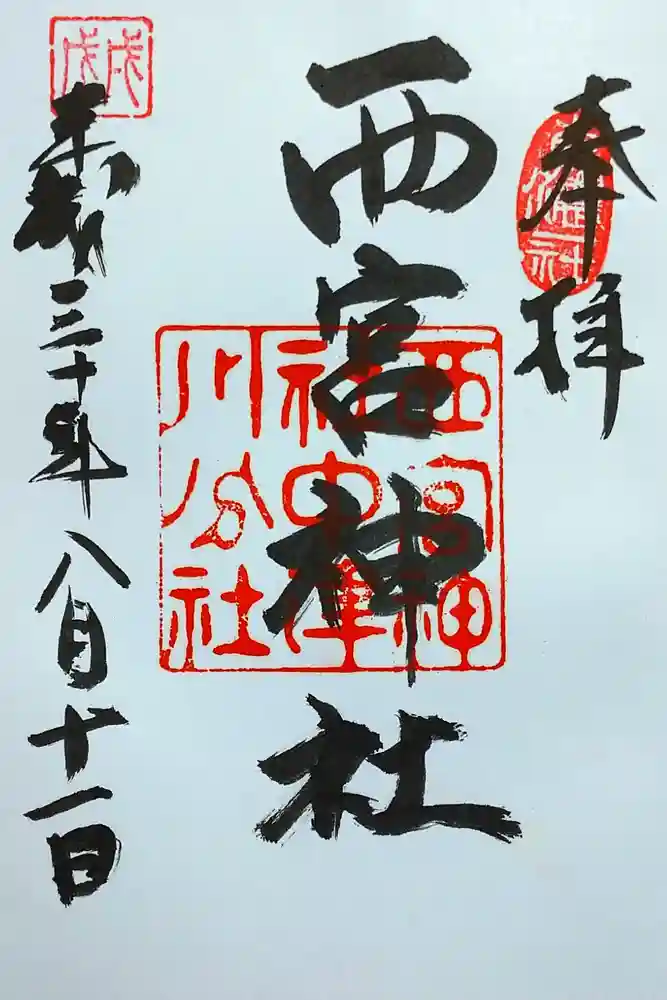 奉拝
西宮神社
西宮神
社中津
川分社
戊戌
平成三十年八月十一日